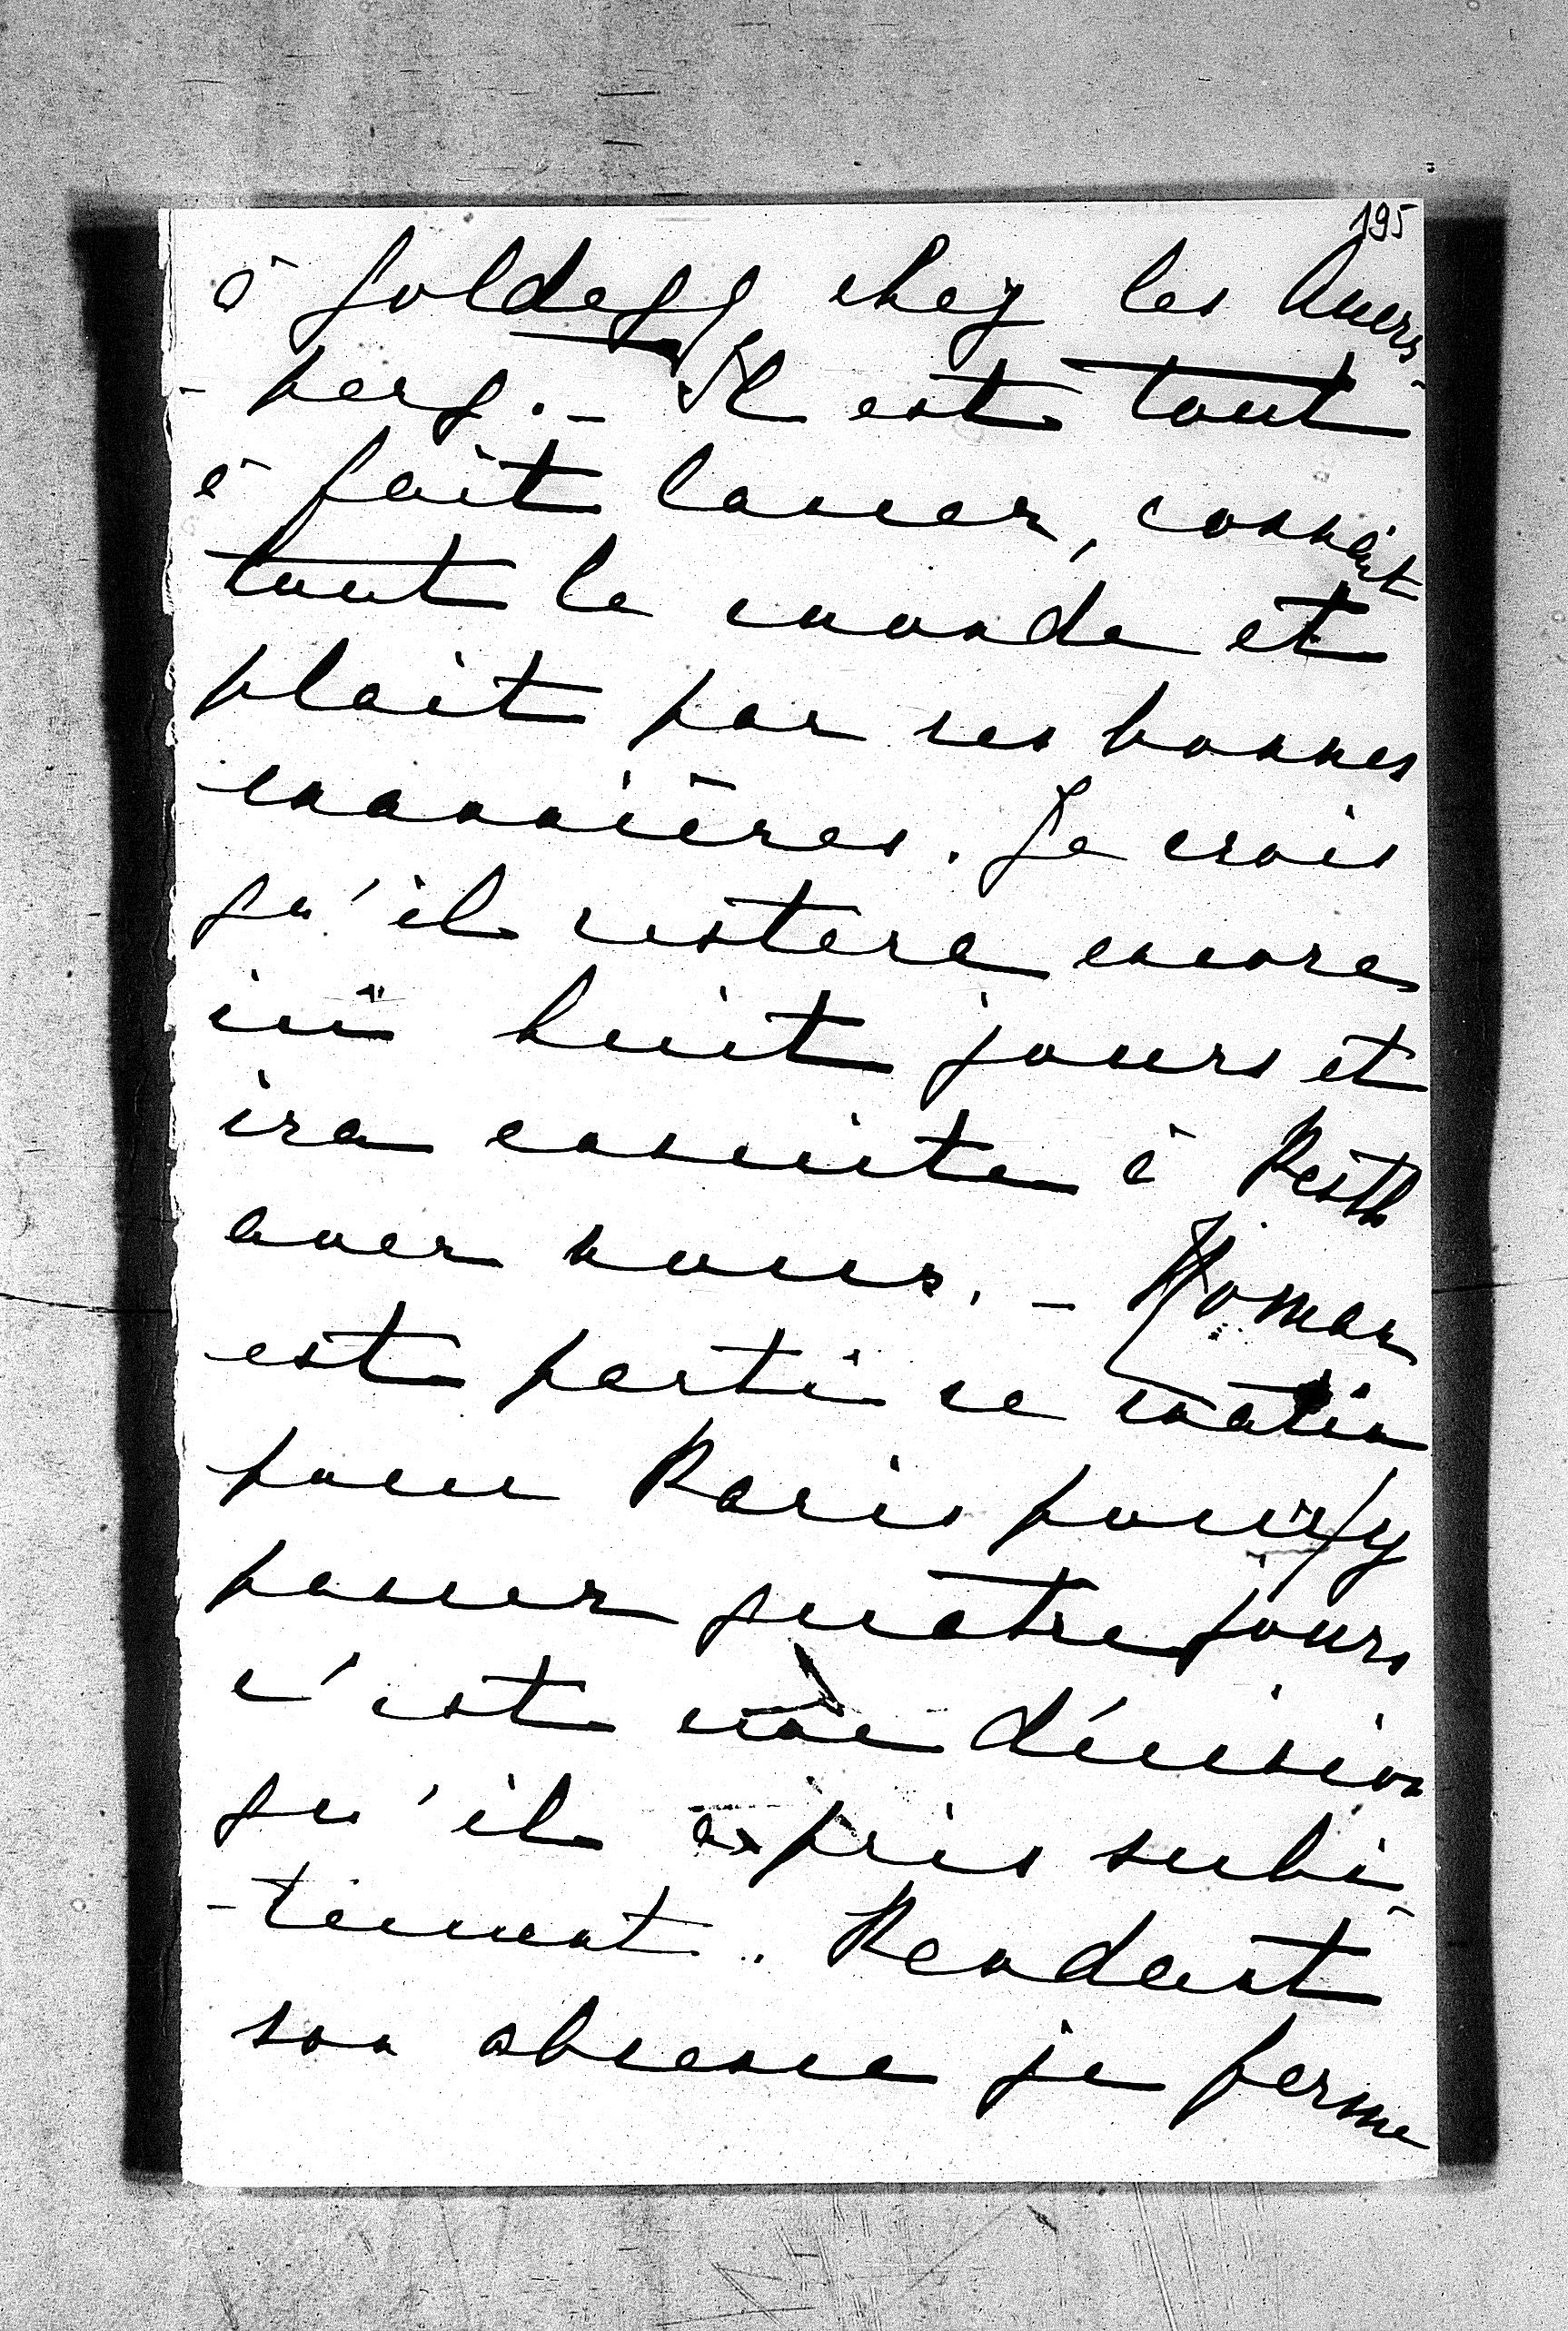 195
à Goldegg chez les Auers-
-perg. – Il est tout
à fait lancé, connait
tout le monde et
plait par ses bonnes
manières. Je crois
qu'il restera encore
ici huit jours et
ira ensuite à Pesth
avec nous. – Roman
est parti ce matin
pour Paris pour y
passer quatre jours
c'est une décision
qu'il a pris subi-
-tement. Pendant
son absence je ferme